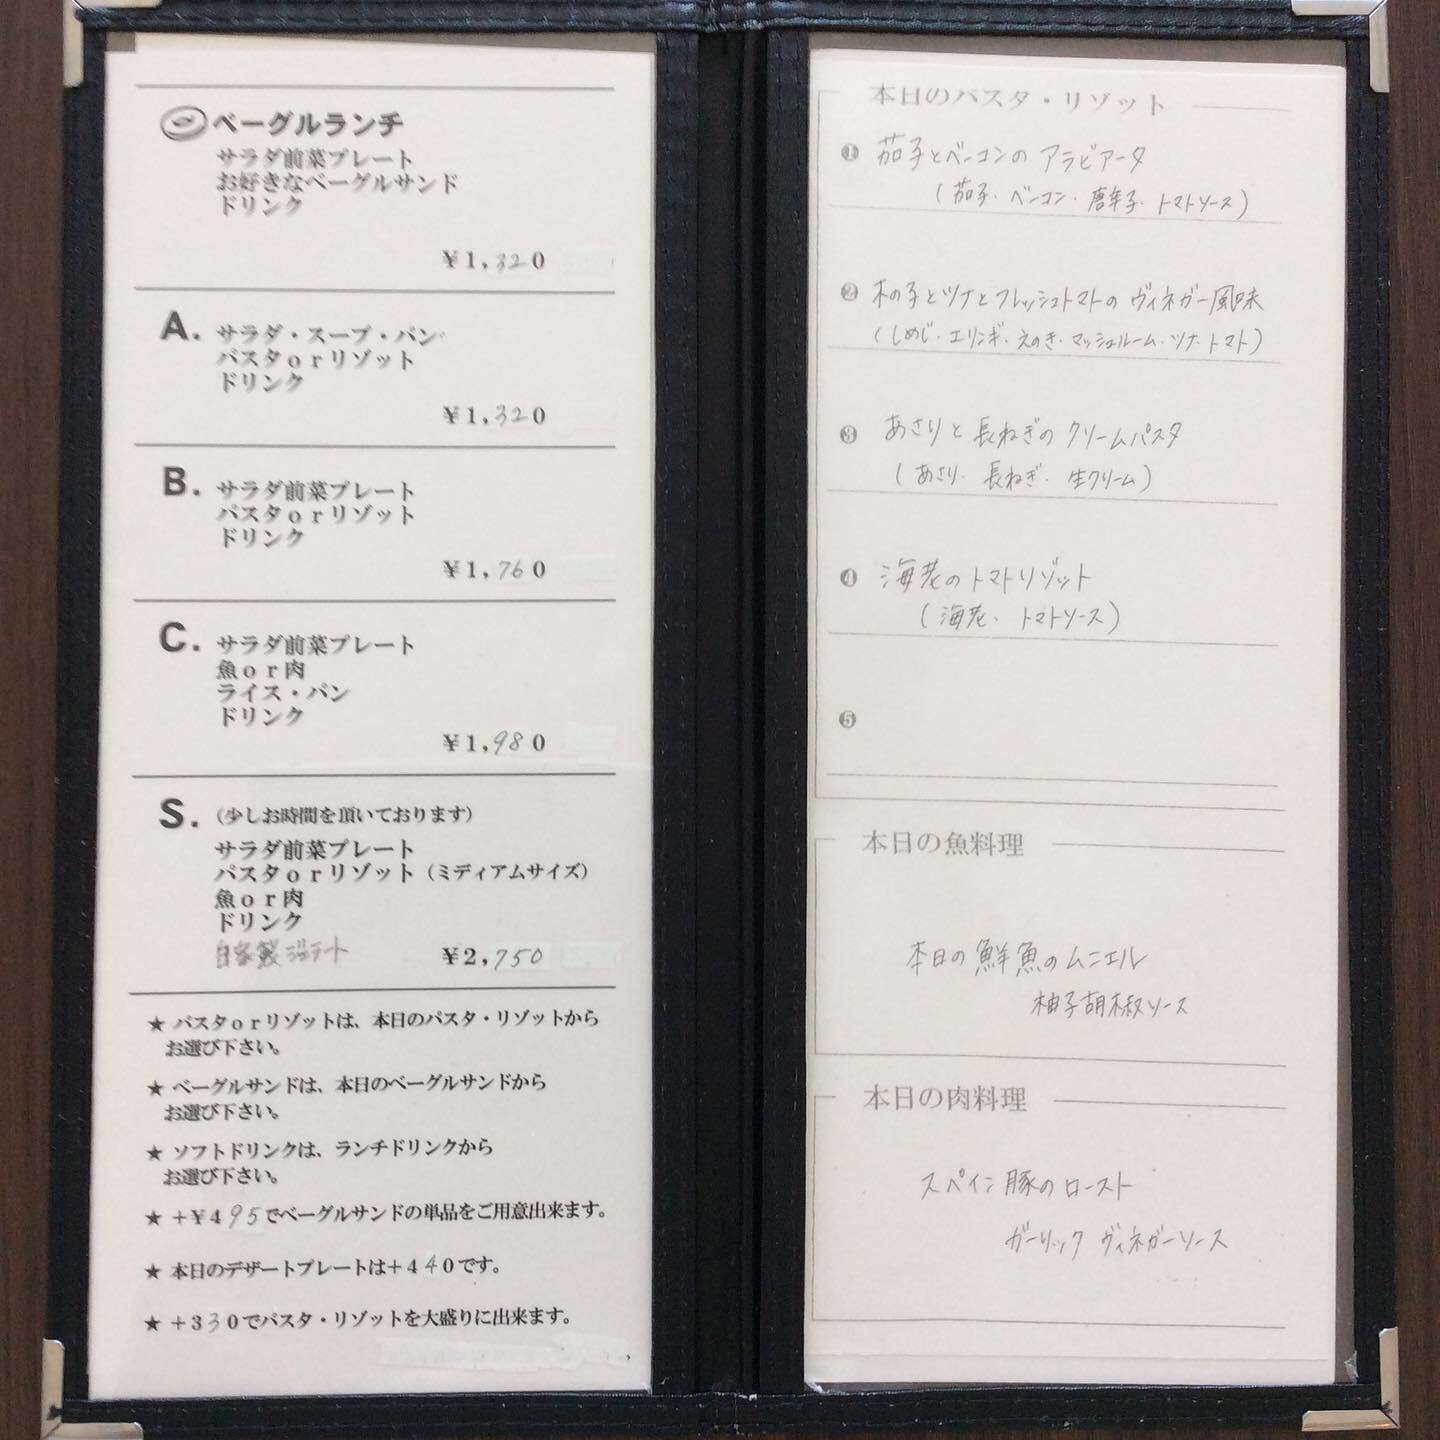 ベーグルランチ
サラダ前菜プレート
お好きなベーグルサンド
ドリンク
￥1,320
A. サラダ・スープ・パン
パスタorリゾット
ドリンク
￥1,320
B. サラダ前菜プレート
パスタorリゾット
ドリンク
￥1,760
C. サラダ前菜プレート
魚or肉
ライス・パン
ドリンク
￥1,980
S. (少しお時間を頂いております)
サラダ前菜プレート
パスタorリゾット (ミディアムサイズ)
魚or肉
ドリンク
自家製ジェラート ￥2,750
★ パスタorリゾットは、本日のパスタ・リゾットから
お選び下さい。
★ ベーグルサンドは、本日のベーグルサンドから
お選び下さい。
★ ソフトドリンクは、ランチドリンクから
お選び下さい。
★ +￥495でベーグルサンドの単品をご用意出来ます。
★ 本日のデザートプレートは+440です。
★ +330でパスタ・リゾットを大盛りに出来ます。
本日のパスタ・リゾット
❶ 茄子とベーコンのアラビアータ
(茄子・ベーコン・唐辛子・トマトソース)
❷ 木の子とツナとフレッシュトマトのヴィネガー風味
(しめじ・エリンギ・えのき・マッシュルーム・ツナ・トマト)
❸ あさりと長ねぎのクリームパスタ
(あさり・長ねぎ・生クリーム)
❹ 海老のトマトリゾット
(海老・トマトソース)
❺
本日の魚料理
本日の鮮魚のムニエル
柚子胡椒ソース
本日の肉料理
スペイン豚のロースト
ガーリックヴィネガーソース